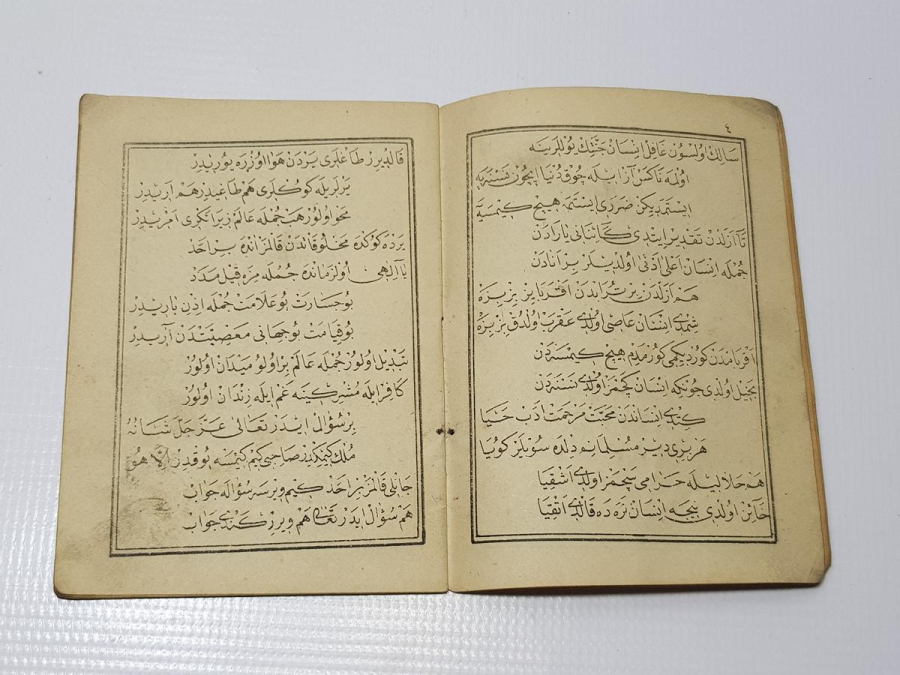 ٤
سالك اولسون غافل انسان جنتك يوللرينه
اوله ناكس آز ايله چوق دنيا ايچون فتنه يه
ايستمديكن ضررى ايستمه هيچ كيمسيه
تا ازلدن تقدير ايتدى كائناتى يارادن
جمله انسان اعلى ادنى اولديلر بر آنادن
هم ازلدن بر تراندن اقربايز بز بزه
شمدى انسان عاصى اولدى عقرب اولدق بز بزه
اقربامدن كورديكمى كورمدم هيچ كيمسه دن
بخيل اولدى چونكه انسان كچمز اولدى نسنه دن
كيتدى انساندن محبت مرحمت ادب حيا
هر برى دير مسلمانم دلده سويلر كويا
هم حلاليله حرامى سچمز اولدى اشقيا
خائن اولدى نيجه انسان نره ده قالدى اتقيا
قالديرر طاغلرى يردن هوا اوزره يوريدر
يرلريله كوكلرى هم طاغيدر هم اريدر
محو اولور هب جمله عالم زيرا تكرى امريدر
يرده كوكده مخلوقاندن قالمز انده بر احد
يا آلهى اول زمانده جمله مزه قيل مدد
بو جسارت بو علامت جمله اذن باريدر
بو قيامت بو جهانى معصيتدن آريدر
تبديل اولور جمله عالم بر اولو ميدان اولور
كافر ايله مشركينه غم ايله زندان اولور
بر سؤال ايدر تعالى عز جل شانه
ملك كيمكدر صاحبى كيم كيمسه يوقدر الا هو
جانلى قالمز بر احد كيم ويرسه سؤاله جواب
هم سؤال ايدر تعالى هم ويرر كندى جواب